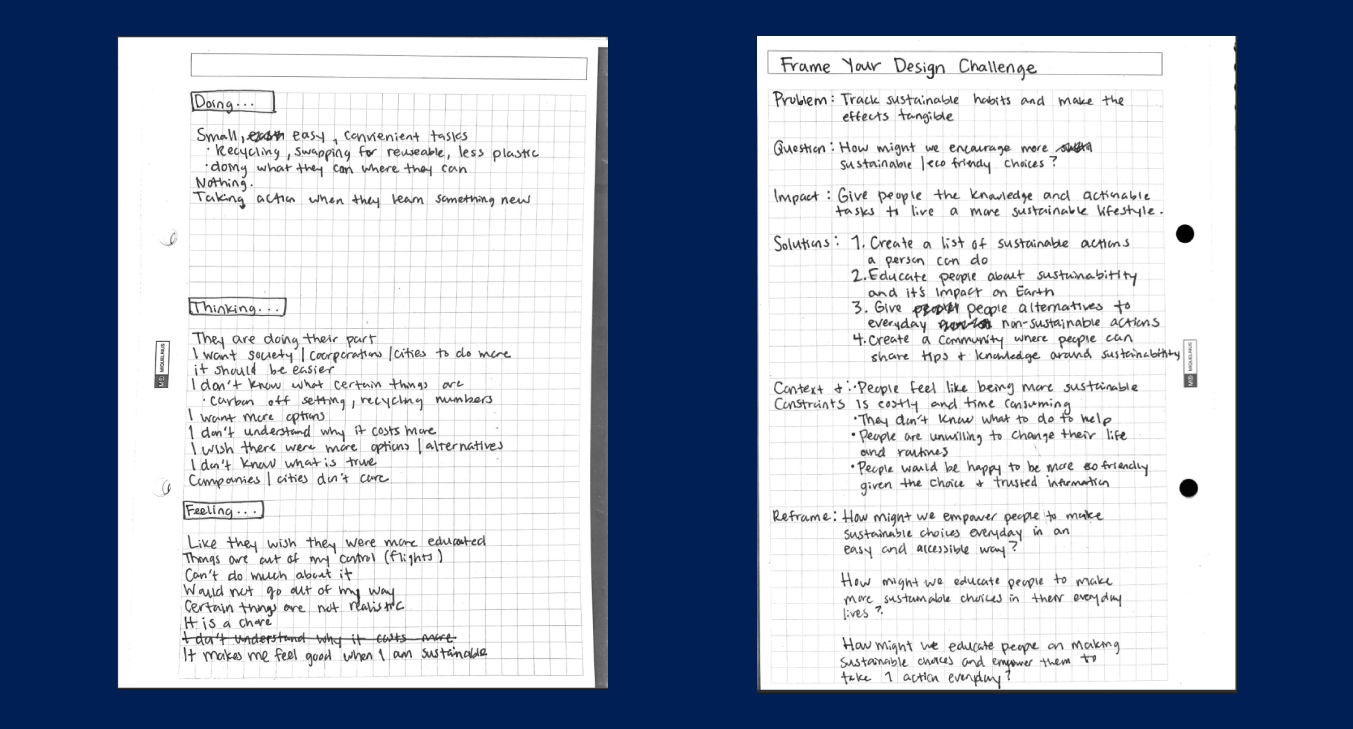 Doing...
Small, easy, convienient tasks
· Recycling, swapping for reuseable, less plastic
· doing what they can where they can
Nothing.
Taking action when they learn something new
Thinking...
They are doing their part
I want society | coorporations | cities to do more
it should be easier
I don't know what certain things are
· carbon off setting, recycling numbers
I want more options
I don't understand why it costs more
I wish there were more options | alternatives
I don't know what is true
Companies | cities don't care
Feeling...
Like they wish they were more educated
Things are out of my control (flights)
Can't do much about it
Would not go out of my way
Certain things are not realistic
It is a chore
I don't understand why it costs more
It makes me feel good when I am sustainable
MIQUELRIUS
Frame Your Design Challenge
Problem: Track sustainable habits and make the
effects tangible
Question: How might we encourage more
sustainable | eco frindy choices?
Impact: Give people the knowledge and actionable
tasks to live a more sustainable lifestyle.
Solutions: 1. Create a list of sustainable actions
a person can do
2. Educate people about sustainability
and it's impact on Earth
3. Give people alternatives to
everyday non-sustainable actions
4. Create a community where people can
share tips + knowledge around sustainability
Context + : · People feel like being more sustainable
Constraints is costly and time consuming
· They don't know what to do to help
· People are unwilling to change their life
and routines
· People would be happy to be more eco friendly
given the choice + trusted information
Reframe: How might we empower people to make
sustainable choices everyday in an
easy and accessible way?
How might we educate people to make
more sustainable choices in their everyday
lives?
How might we educate people on making
sustainable choices and empower them to
take 1 action everyday?
MIQUELRIUS